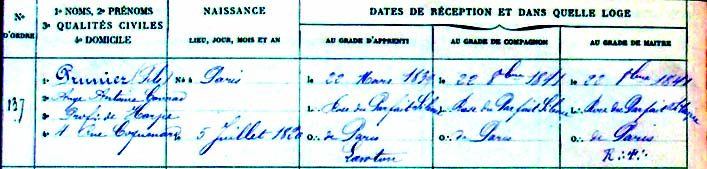 Nº D'ORDRE
1º NOMS, 2º PRÉNOMS
3º QUALITÉS CIVILES
4º DOMICILE
NAISSANCE
LIEU, JOUR, MOIS ET AN
DATES DE RÉCEPTION ET DANS QUELLE LOGE
AU GRADE D'APPRENTI
AU GRADE DE COMPAGNON
AU GRADE DE MAITRE
137
1º Prumier (fils)
2º Ange Antoine Conrad
3º Prof. de Harpe
4º 1 rue Coquenard
Né à Paris
le 5 Juillet 1820
le 22 Mars
L∴ Rose du Parfait Silence
O∴ de Paris
Lawton
le 22 8bre 1841
L∴ Rose du Parfait Silence
O∴ de Paris
le 22 8bre 1841
L∴ Rose du Parfait Silence
O∴ de Paris